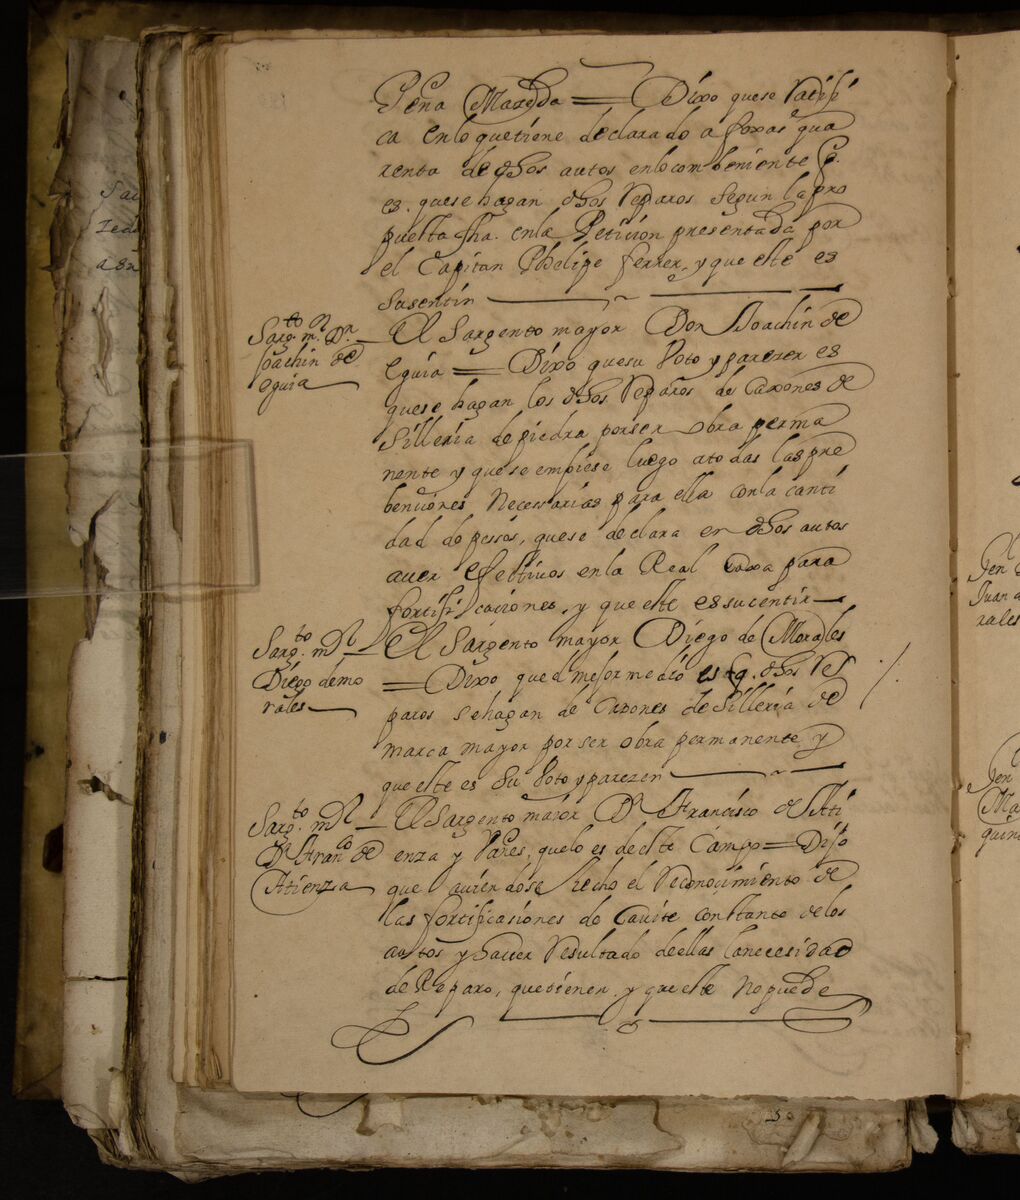 Peña Maredda = Dixo que se ratifi
ca en lo que tiene declarado a foxas qua
renta de dhos autos en lo combeniente q.
es. que se hagan dhos Reparos segun la pro
puesta fha. en la Peticion presentada por
el Capitan Phelipe ferrer, y que este es
su sentir
Sargto mor Dn
Joachin de
eguia
El Sargento mayor Don Joachin de
Eguia = Dixo que su Voto y parezer es
que se hagan los dhos Reparos de Caxones de
Silleria de piedra por ser obra perma
nente y que se empiese luego a todas las pre
benciones Necessarias para ella con la canti
dad de pessos, que se declara en dhos autos
auer efectivos en la Real Caxa para
fortificaciones, y que este es su centir
Sargto mor
Diego de mo
rales
El Sargento mayor Diego de Morales
= Dixo que el mejor medio es q. dhos Re
paros se hagan de Caxones de Silleria de
marca mayor por ser obra permanente y
que este es Su Voto y parezer
Sargto mor
Dn Franco de
Atienza
El Sargento maior Dn Francisco de Ati
enza y Vañes, que lo es de este Campo = Dijo
que auiendose hecho el Reconocimiento de
las fortificasiones de Cauite con tanto de los
autos y hauer Resultado de ellas la necesidad
de Reparo, que tienen, y que este No puede
Gen
Juan
rales
Gen
Ma
quin